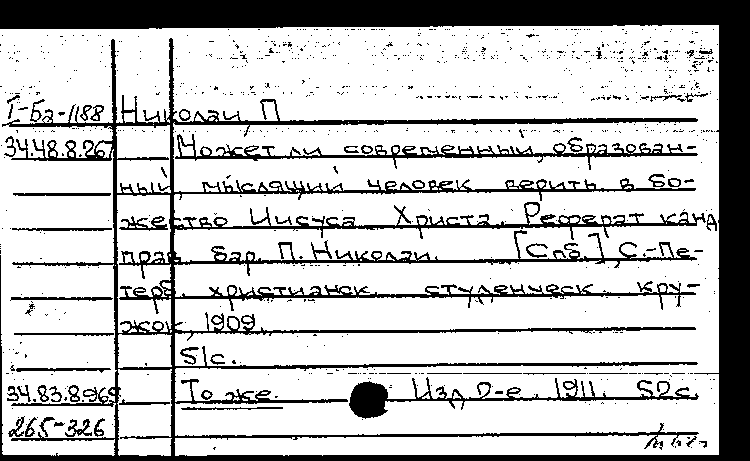 I-Ба-1188 Николаи, П
34.48.8.267 Может ли современный, образован-
ный, мыслящий человек верить в бо-
жество Иисуса Христа. Реферат канд.
прав. бар. П. Николаи. [Спб.], С.-Пе-
терб. христианск. студенческ. кру-
жок, 1909.
51с.
34.83.8969. То же. Изд. 2-е. 1911. 52с.
265-326